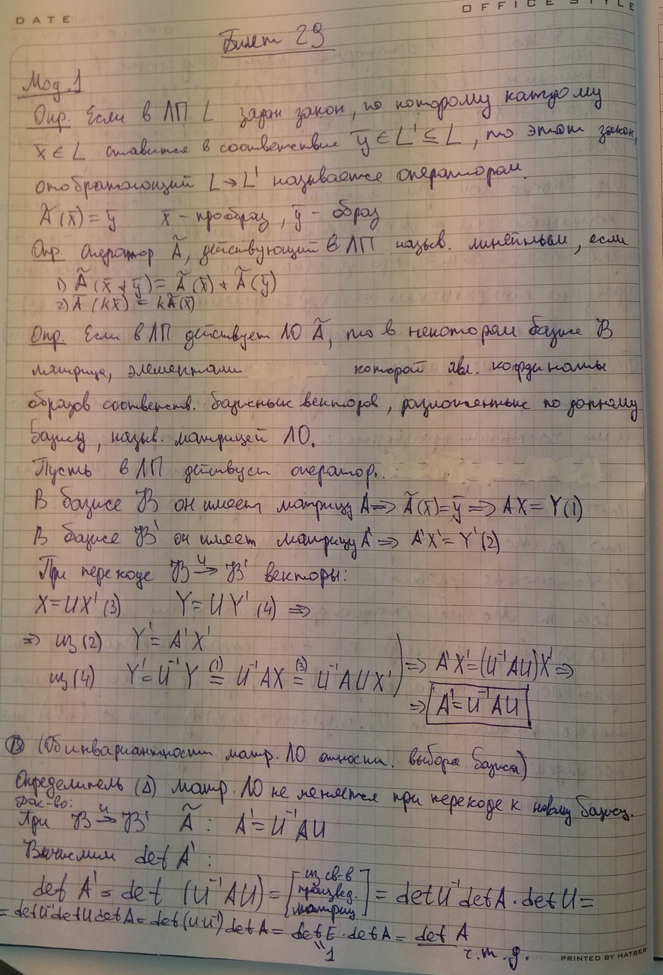 DATE
OFFICE STYLE
Билет 29
Мод.1
Опр. Если в ЛП L задан закон, по которому каждому
x̄ ∈ L ставится в соответствие ȳ ∈ L' ⊆ L, то этот закон,
отображающий L → L' называется оператором.
Ã(x̄) = ȳ x̄ - прообраз, ȳ - образ
Опр. Оператор Ã, действующий в ЛП назыв. линейным, если
1) Ã(x̄ + ȳ) = Ã(x̄) + Ã(ȳ)
2) Ã(kx̄) = kÃ(x̄)
Опр. Если в ЛП действует ЛО Ã, то в некотором базисе B
матрица, элементами которой явл. координаты
образов соответств. базисных векторов, разложенные по данному
базису, назыв. матрицей ЛО.
Пусть в ЛП действует оператор.
В базисе B он имеет матрицу A ⇒ Ã(x̄) = ȳ ⇒ AX = Y (1)
В базисе B' он имеет матрицу A' ⇒ A'X' = Y' (2)
При переходе B →ᵁ B' векторы:
X = UX' (3) Y = UY' (4) ⇒
⇒ из (2) Y' = A'X'
из (4) Y' = U⁻¹Y =⁽¹⁾ U⁻¹AX =⁽³⁾ U⁻¹AUX' ) ⇒ A'X' = (U⁻¹AU)X' ⇒
⇒ A' = U⁻¹AU
В (Об инвариантности матр. ЛО относит. выбора базиса)
Определитель (Δ) матр. ЛО не меняется при переходе к новому базису.
Док-во:
При B →ᵁ B' Ã: A' = U⁻¹AU
Вычислим det A':
det A' = det (U⁻¹AU) = [из св-в произвед. матриц] = det U⁻¹ det A · det U =
= det U⁻¹ det U det A = det (UU⁻¹) det A = det E · det A = det A
"1
ч.т.д.
PRINTED BY HATBER